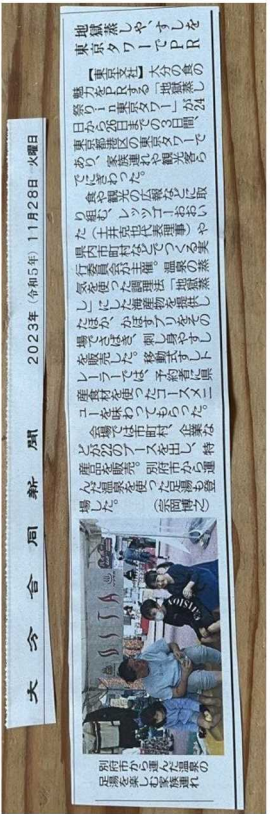 大分合同新聞 2023年(令和5年)11月28日 火曜日
地獄蒸しや、すしを
東京タワーでPR
【東京支社】大分の食の
魅力をPRする「地獄蒸し
祭りin東京タワー」が24
日から26日までの3日間、
東京都港区の東京タワーで
あり、家族連れや観光客ら
でにぎわった。
食や観光の広報などに取
り組む、レッツゴーおおい
た(土井克也代表理事)や
県内市町村などでつくる実
行委員会が主催。温泉の蒸
気を使った調理法「地獄蒸
し」にした海産物を提供し
たほか、かぼすブリをその
場でさばき、刺し身やすし
を販売した。移動式すしト
レーラーでは、予約客に県
産食材を使ったコースメニ
ューを味わってもらった。
会場では市町村、企業な
どが22のブースを出し、特
産品を販売。別府市から運
んだ温泉を使った足湯も登
場した。 (宗岡博之)
別府市から運んだ温泉の
足湯を楽しむ家族連れ